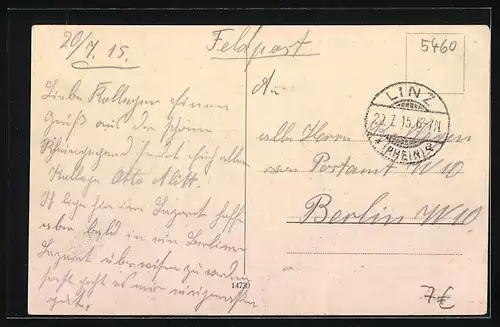 20/7. 15.
Feldpost
5460
Liebe Kollegen einen
Gruß aus der schönen
Rheingegend sendet Euch allen
Kollege Otto Mitt.
Ich liege hier im Lazarett hoffe
aber bald in ein Berliner
Lazarett überwiesen zu werden
sonst geht es mir einigermaßen
gut.
An
alle Herren
vom Postamt W 10
Berlin W 10.
LINZ
22.7.15. 6-7N
* (RHEIN) a
14730
7€